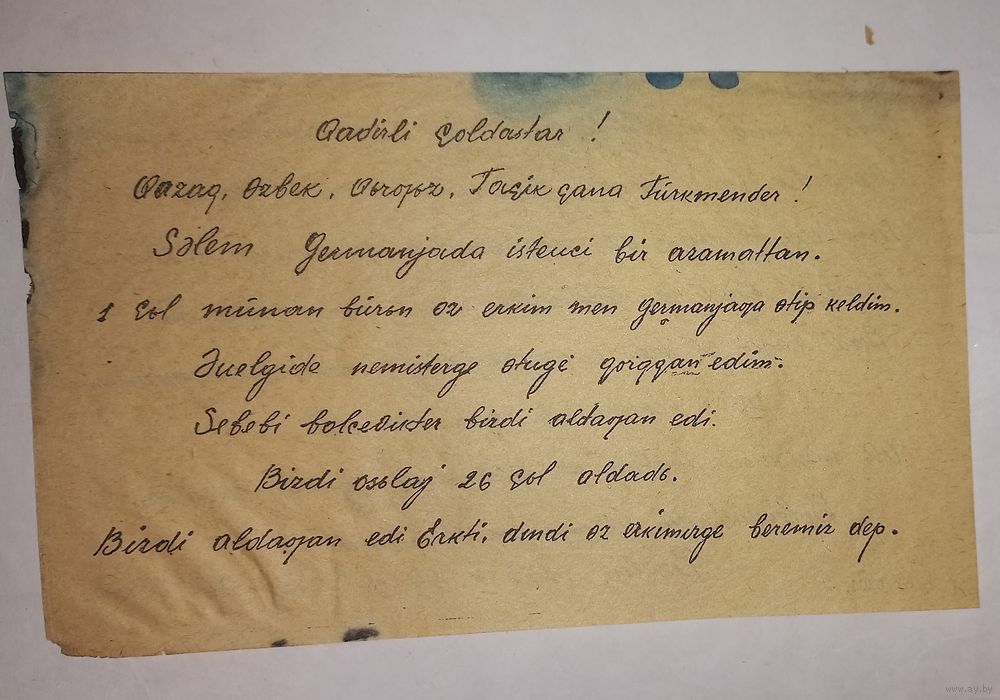 Qadirli çoldastar !
Qazaq, Özbek, Qьrƣьz, Taçik çana Türkmender !
Sәlem Germanjada isteuci bir azamattan.
1 çьl mūnan būrьn өz erkim men Germanjaƣa өtip keldim.
Әuelgide nemisterge өtugö qoiqqan edim.
Sebebi bolcevikter bizdi aldaƣan edi.
Bizdi osьlaj 26 çьl aldadь.
Bizdi aldaƣan edi Erkti, dindi өz erkimizge beremiz dep.
www.ay.by